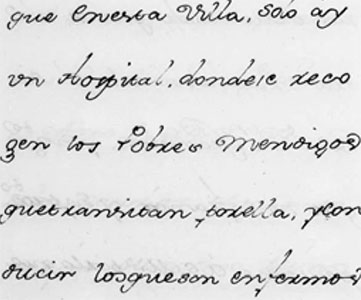 que enesta Villa, solo ay
vn Hospital, donde se reco
gen los Pobres Mendigos
quetransitan porella, y con
ducir losqueson enfermos